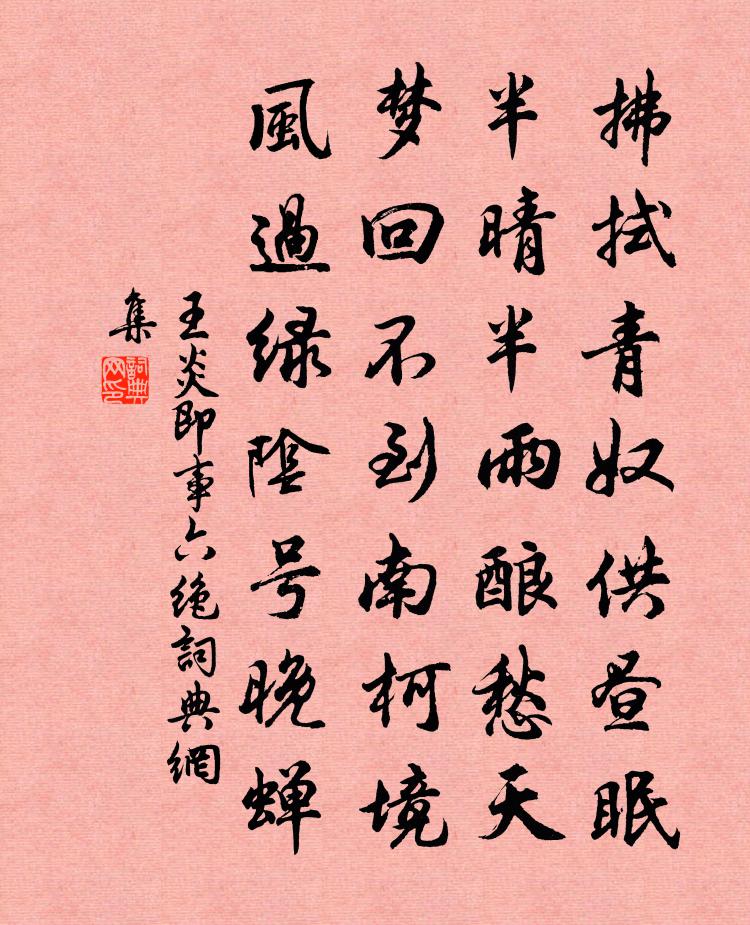 拂拭青奴供昼眠
半晴半雨酿愁天
梦回不到南柯境
風過绿陰号晚蝉
王炎即事六绝詞典網
集
詞典
网印